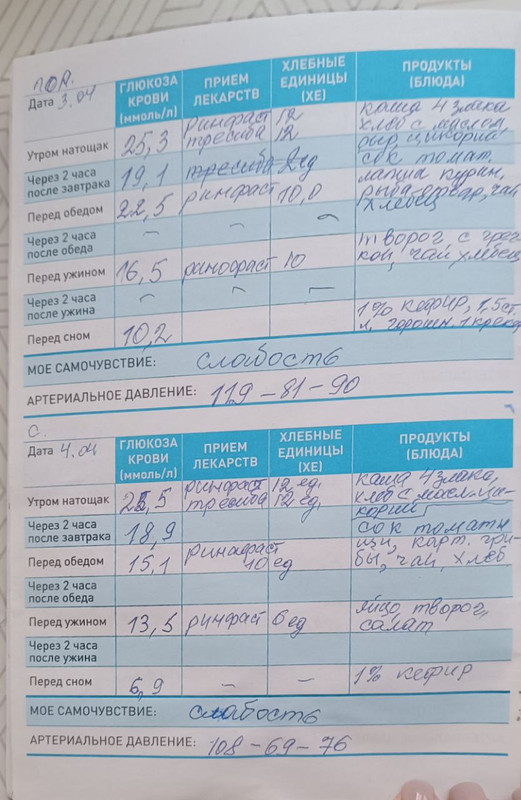 Дата 3.04
ГЛЮКОЗА КРОВИ (ммоль/л)
ПРИЕМ ЛЕКАРСТВ
ХЛЕБНЫЕ ЕДИНИЦЫ (ХЕ)
ПРОДУКТЫ (БЛЮДА)
Утром натощак 25,3 ринфаст 12 каша 4 злака
тресиба 12 хлеб с маслом,
сыр, цикорий
Через 2 часа после завтрака 19,1 тресиба 2 ед сок томат
Перед обедом 22,5 ринфаст 10,0 лапша курин,
рыба, чай,
хлебец
Через 2 часа после обеда – – –
творог, с
Перед ужином 16,5 ринфаст 10 кой, чай хлебец
Через 2 часа после ужина – – –
1% кефир, 1,5 ст.
Перед сном 10,2 л. горошн. 1 крекер
МОЕ САМОЧУВСТВИЕ: слабость
АРТЕРИАЛЬНОЕ ДАВЛЕНИЕ: 119 – 81 – 90
С.
Дата 4.04
ГЛЮКОЗА КРОВИ (ммоль/л)
ПРИЕМ ЛЕКАРСТВ
ХЛЕБНЫЕ ЕДИНИЦЫ (ХЕ)
ПРОДУКТЫ (БЛЮДА)
Утром натощак ринфаст 12 ед, каша 4 злака,
тресиба 12 ед, хлеб с масл. ци-
корий
Через 2 часа после завтрака 18,9 сок томатн
Перед обедом 15,1 ринфаст 10 ед щи, карт. гри-
бы, чай, хлеб
Через 2 часа после обеда
Перед ужином 13,5 ринфаст 6 ед яйцо творог,
салат
Через 2 часа после ужина
Перед сном 6,9 – – 1% кефир
МОЕ САМОЧУВСТВИЕ: слабость
АРТЕРИАЛЬНОЕ ДАВЛЕНИЕ: 108 – 69 – 76